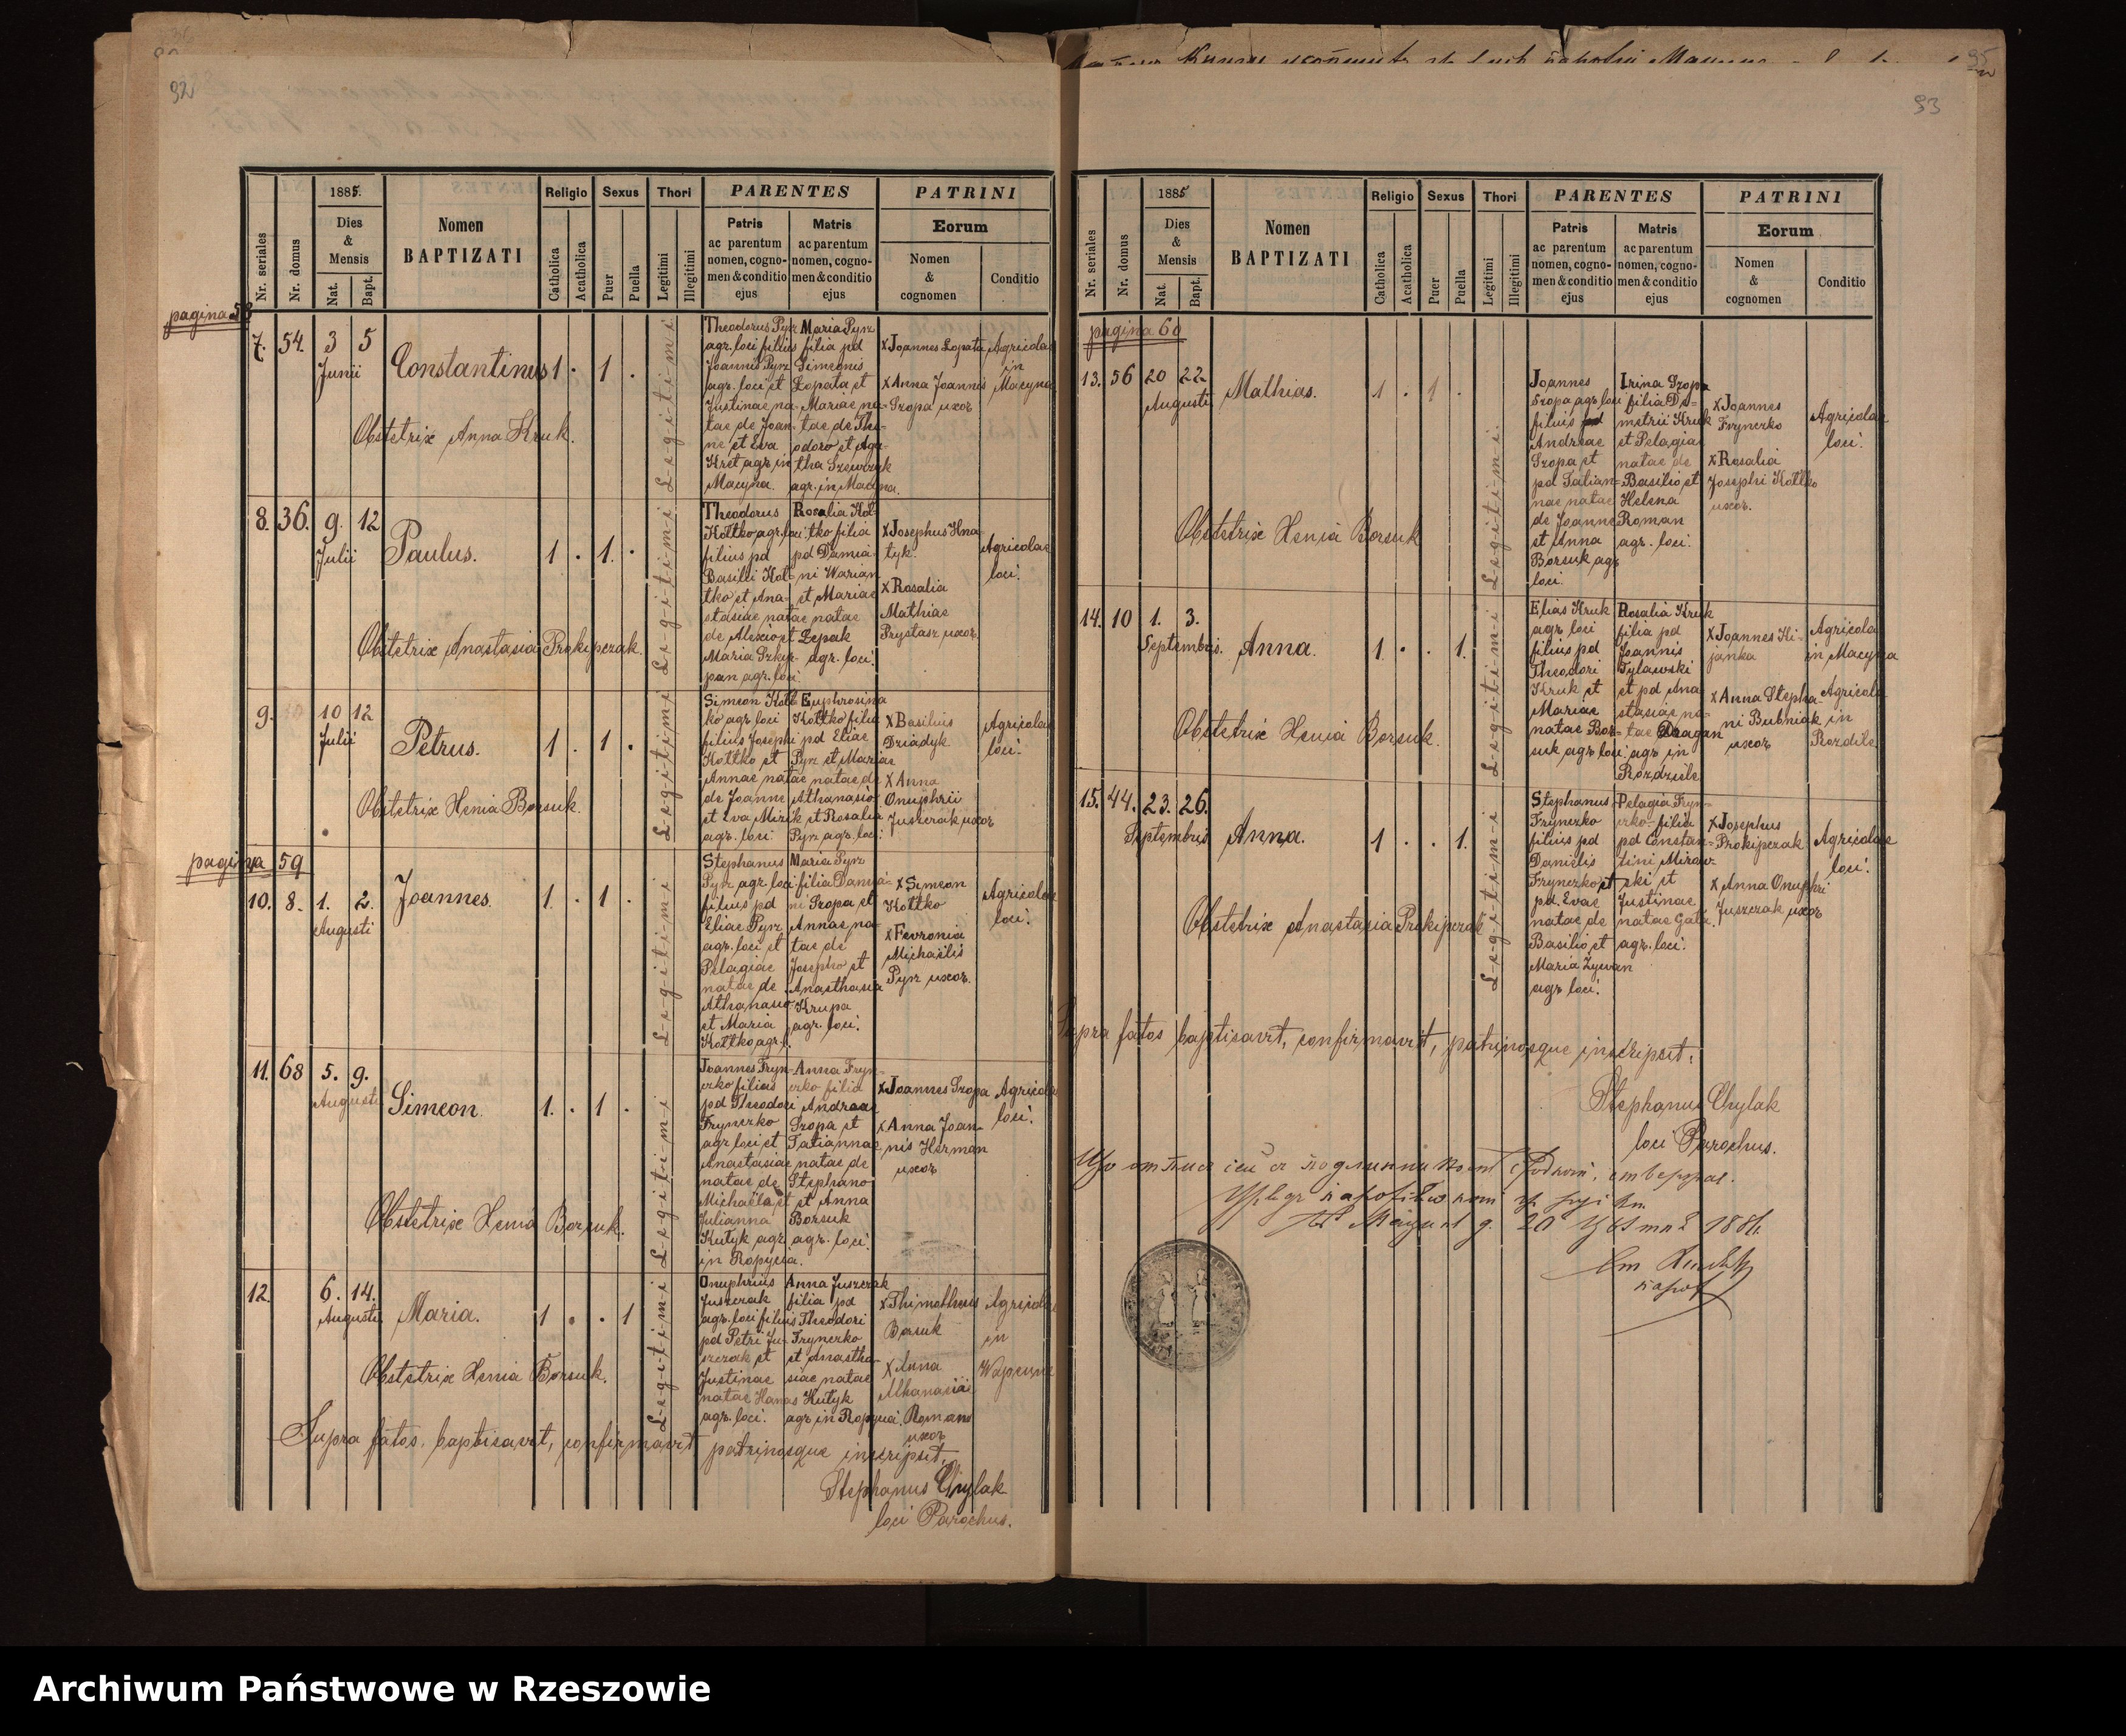 92
1885.
Religio
Sexus
Thori
PARENTES
PATRINI
Nr. seriales
Nr. domus
Dies
&
Mensis
Nat.
Bapt.
Nomen
BAPTIZATI
Catholica
Acatholica
Puer
Puella
Legitimi
Illegitimi
Patris
ac parentum
nomen, cogno-
men & conditio
ejus
Matris
ac parentum
nomen, cogno-
men & conditio
ejus
Eorum
Nomen
&
cognomen
Conditio
pagina 58
7. 54. 3 5
Junii
Constantinus 1 . 1 .
Legitimi
Theodorus Pyrz
agr. loci filius
Joannis Pyrz
agr. loci et
Justinae na-
tae de Joan-
ne et Eva
Kret agr. in
Macyna.
Maria Pyrz
filia pd
Simeonis
Lopata et
Mariae na-
tae de The-
odoro et Aga-
tha Szewczyk
agr. in Macyna.
x Joannes Lopata
x Anna Joannis
Szopa uxor
Agricolae
in
Macyna
Obstetrix Anna Kruk.
8. 36. 9. 12
Julii
Paulus. 1 . 1. .
Legitimi
Theodorus
Kottko agr. loci
filius pd
Basilii Kot-
tko et Ana-
stasiae natae
de Alexio et
Maria
pan agr. loci.
Rosalia Kot-
tko filia
pd Damia-
ni Warian
et Mariae
natae
Lepak
agr. loci.
x Josephus Hna-
tyk.
x Rosalia
Mathiae
Prystasz uxor.
Agricolae
loci.
Obstetrix Anastasia Prokipczak.
9. 10 12
Julii
Petrus. 1 . 1 .
Legitimi
Simeon Kott-
ko agr. loci
filius Josephi
Kottko et
Annae natae
de Joanne
et Eva Mizik
agr. loci.
Euphrosina
Kottko filia
pd Eliae
Pyrz et Mariae
natae de
Athanasio
et Rosalia
Pyrz agr. loci.
x Basilius
Dziadyk
x Anna
Onuphrii
Juszczak uxor
Agricolae
loci.
Obstetrix Xenia Borsuk.
pagina 59
10. 8. 1. 2.
Augusti
Joannes. 1. . 1 .
Legitimi
Stephanus
Pyrz agr. loci
filius pd
Eliae Pyrz
agr. loci et
Pelagiae
natae de
Athanasio
et Maria
Kottko agr. l.
Maria Pyrz
filia Damia-
ni Szopa et
Annae na-
tae de
Josepho et
Anasthasia
Krupa
agr. loci.
x Simeon
Kottko
x Fevronia
Michaelis
Pyrz uxor.
Agricolae
loci.
11. 68 5. 9.
Augusti
Simeon. 1. . 1 .
Legitimi
Joannes Fryn-
czko filius
pd Theodori
Frynczko
agr. loci et
Anastasiae
natae de
Michaële et
Julianna
Kutyk agr.
in Ropycia.
Anna Fryn-
czko filia
Andreae
Szopa et
Tatiannae
natae de
Stephano
et Anna
Borsuk
agr. loci.
x Joannes Szopa
x Anna Joan-
nis Herman
uxor
Agricolae
loci.
Obstetrix Xenia Borsuk.
12. 6. 14.
Augusti
Maria. 1 . . 1
Legitimi
Onuphrius
Juszczak
agr. loci filius
pd Petri Ju-
szczak et
Justinae
natae Hanas
agr. loci.
Anna Juszczak
filia pd
Theodori
Frynczko
et Anastha-
siae natae
Kutyk
agr. in Ropycia.
x Thimotheus
Borsuk
x Anna
Athanasii
Roman
uxor
Agricolae
in
Wapenne
Obstetrix Xenia Borsuk.
Supra fatos, baptisavit, confirmavit patrinosque inscripsit,
Stephanus Chylak
loci Parochus.
93
1885
Religio
Sexus
Thori
PARENTES
PATRINI
Nr. seriales
Nr. domus
Dies
&
Mensis
Nat.
Bapt.
Nomen
BAPTIZATI
Catholica
Acatholica
Puer
Puella
Legitimi
Illegitimi
Patris
ac parentum
nomen, cogno-
men & conditio
ejus
Matris
ac parentum
nomen, cogno-
men & conditio
ejus
Eorum
Nomen
&
cognomen
Conditio
pagina 60
13. 56 20 22
Augusti
Mathias. 1 . 1 .
Legitimi.
Joannes
Szopa agr. loci
filius pd
Andreae
Szopa et
pd Tatian-
nae natae
de Joanne
et Anna
Borsuk agr.
loci.
Irina Szopa
filia De-
metrii Kruk
et Pelagiae
natae de
Basilio et
Helena
Roman
agr. loci.
x Joannes
Frynczko
x Rosalia
Josephi Kottko
uxor.
Agricolae
loci.
Obstetrix Xenia Borsuk
14. 10 1. 3.
Septembris.
Anna. 1. . . 1.
Legitimi
Elias Kruk
agr. loci
filius pd
Theodori
Kruk et
Mariae
natae Bor-
suk agr. loci.
Rosalia Kruk
filia pd
Joannis
Tylawski
et pd Ana-
stasiae na-
tae Dragan
agr. in
Rozdziele
x Joannes Hi-
janka
x Anna Stepha-
ni Bubniak
uxor
Agricola
in Macyna
Agricola
in
Rozdile
Obstetrix Xenia Borsuk.
15. 44. 23. 26.
Septembris
Anna. 1 . . 1.
Legitimi
Stephanus
Frynczko
filius pd
Danielis
Frynczko et
pd. Evae
natae de
Basilio et
Maria Zywan
agr. loci.
Pelagia Fryn-
czko filia
pd Constan-
tini Miraw-
ski et
Justinae
natae Gala.
agr. loci.
x Josephus
Prokipczak
x Anna Onuphri
Juszczak uxor
Agricolae
loci.
Obstetrix Anastasia Prokipczak
Supra fatos baptisavit, confirmavit, patrinosque inscripsit:
Stephanus Chylak
loci Parochus.
20 1886.
Archiwum Państwowe w Rzeszowie